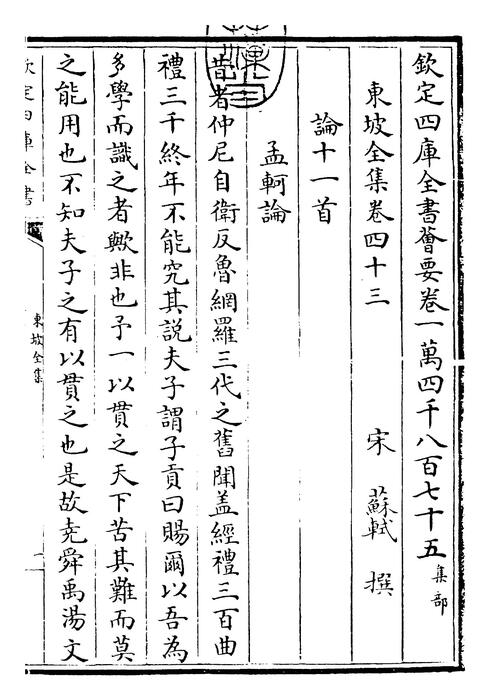 欽定四庫全書薈要卷一萬四千八百七十五集部
東坡全集卷四十三
宋 蘇軾 撰
論十一首
孟軻論
昔者仲尼自衛反魯網羅三代之舊聞盖經禮三百曲
禮三千終年不能究其説夫子謂子貢曰賜爾以吾為
多學而識之者歟非也予一以貫之天下苦其難而莫
之能用也不知夫子之有以貫之也是故堯舜禹湯文
欽定四庫全書
東坡全集
一